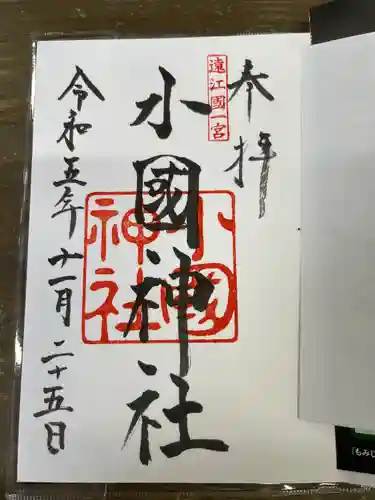 奉拝
遠江國一宮
小國神社
小國神社
令和五年十一月二十五日
「もみじ